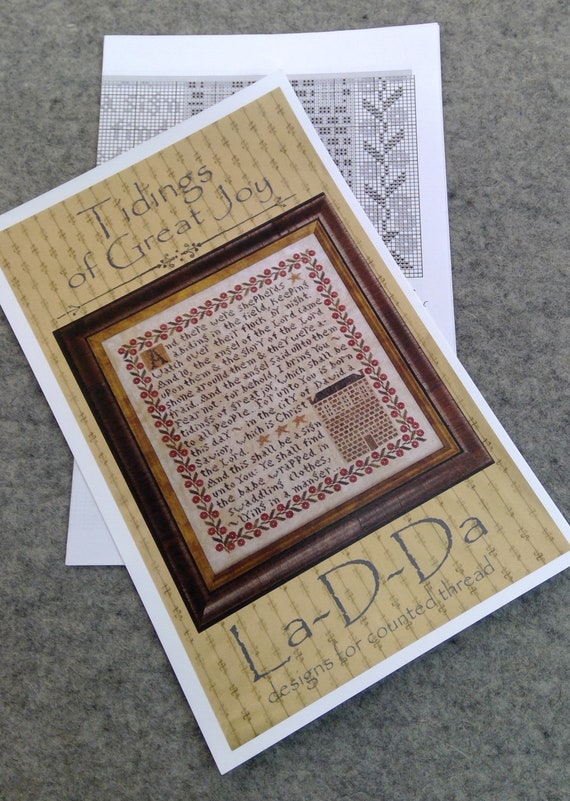 Tidings
of Great Joy
And there were shepherds
abiding in the field, keeping
watch over their flock by night.
And lo, the angel of the Lord came
upon them & the glory of the Lord
shone around them & they were a-
fraid. And the angel said unto them
fear not, for behold, I bring you
tidings of great joy, which shall be
to all people. For unto you is born
this day in the city of David a
Savior, which is Christ
the Lord.
And this shall be a sign
unto you. Ye shall find
the babe wrapped in
swaddling clothes,
lying in a manger.
La-D-Da
designs for counted thread
a sign
find